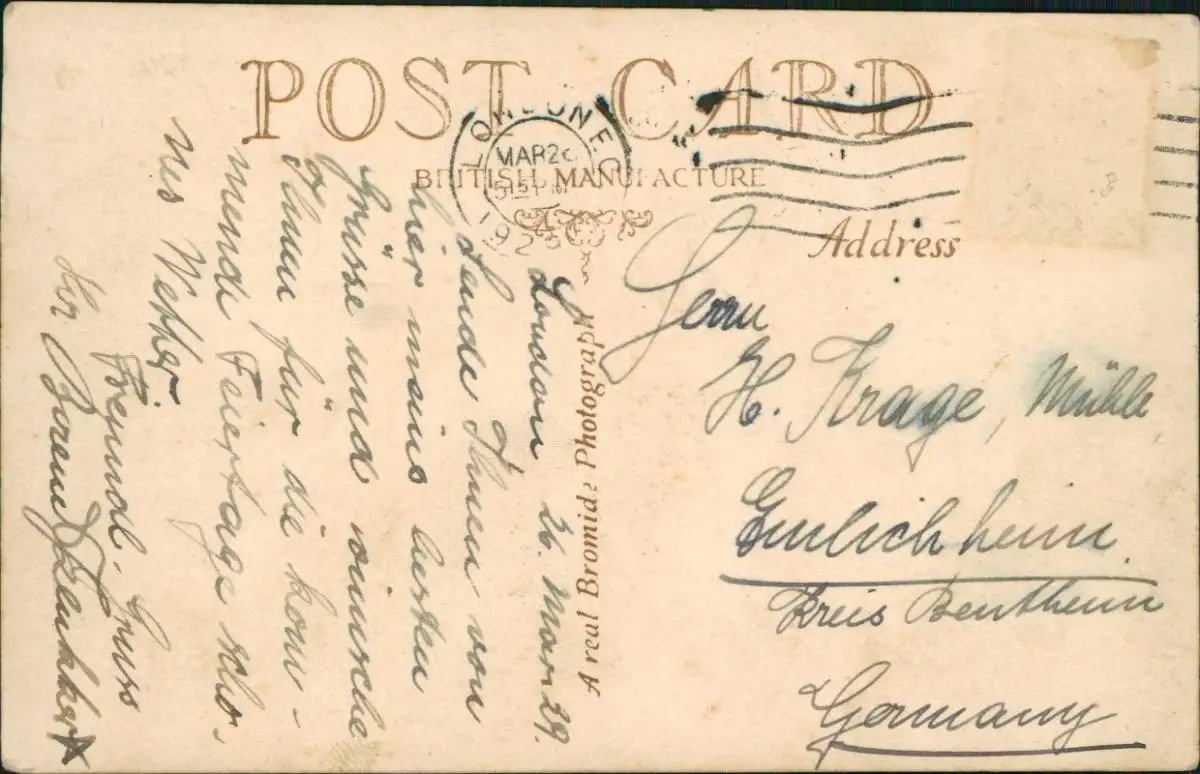 POST CARD
BRITISH MANUFACTURE
LONDON E.C.
MAR 26
5 15 PM
1929
Address
A real Bromide Photograph
London 26. März 29.
Sende Ihnen von
hier meine besten
Grüsse und wünsche
Ihnen für die kom-
mende Feiertage schö-
nes Wetter
Freundl. Gruss
Ihr
Herrn
H. Krage, Mühle,
Emlichheim
Kreis Bentheim
Germany